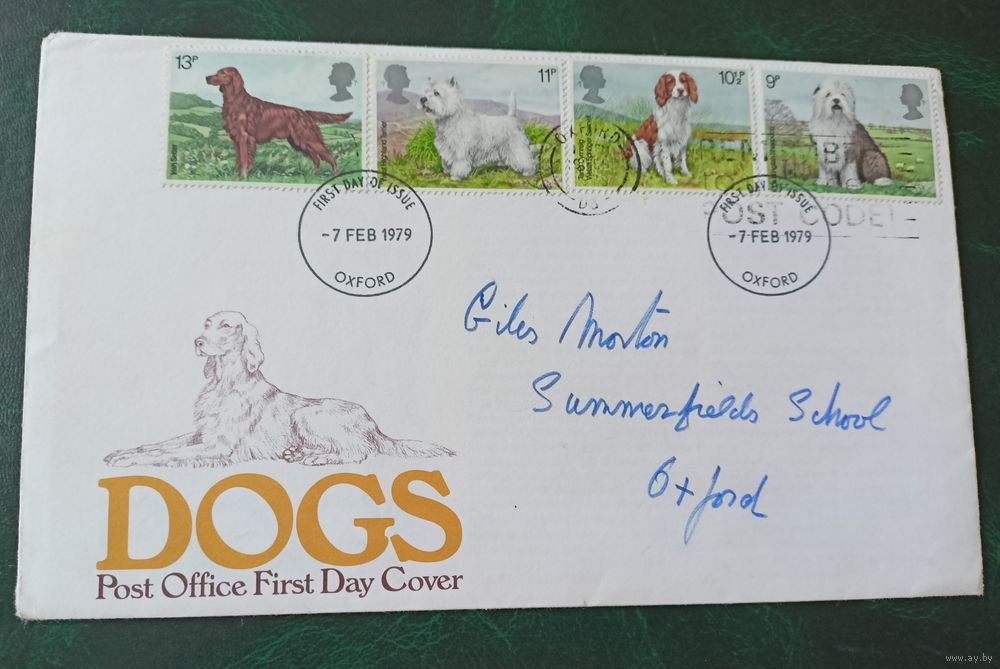 13P
11P
10½P
9P
Irish Setter
West Highland Terrier
Welsh Springer Spaniel
OXFORD
FIRST DAY OF ISSUE
-7 FEB 1979
OXFORD
POST CODE
FIRST DAY OF ISSUE
-7 FEB 1979
OXFORD
Giles Morton
Summerfields School
Oxford
DOGS
Post Office First Day Cover
www.ay.by